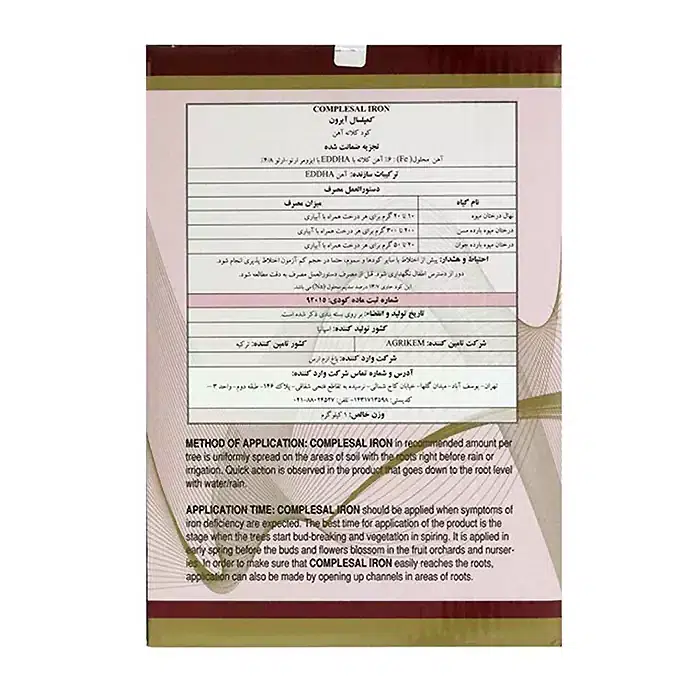 COMPLESAL IRON
کمپلسال آیرون
کود کلاته آهن
تجزیه ضمانت شده
آهن محلول( Fe) : ۶٪ آهن کلاته با EDDHA با ایزومر ارتو-ارتو ۴/۸٪
ترکیبات سازنده: آهن EDDHA
دستورالعمل مصرف
نام گیاه میزان مصرف
نهال درختان میوه ۱۰ تا ۲۰ گرم برای هر درخت همراه با آبیاری
درختان میوه بارده مسن ۲۰۰ تا ۳۰۰ گرم برای هر درخت همراه با آبیاری
درختان میوه بارده جوان ۲۰ تا ۵۰ گرم برای هر درخت همراه با آبیاری
احتیاط و هشدار: پیش از اختلاط با سایر کودها و سموم، حتما در حجم کم آزمون اختلاط پذیری انجام شود.
دور از دسترس اطفال نگهداری شود. قبل از مصرف دستورالعمل مصرف به دقت مطالعه شود.
این کود حاوی ۱۳/۷ درصد سدیم محلول (Na) می باشد.
شماره ثبت ماده کودی: ۹۲۰۱۵
تاریخ تولید و انقضاء: بر روی بسته بندی ذکر شده است
کشور تولید کننده: اسپانیا
شرکت تامین کننده: AGRIKEM کشور تامین کننده: ترکیه
شرکت وارد کننده: باغ ارم ارس
آدرس و شماره تماس شرکت وارد کننده:
تهران- یوسف آباد- میدان گلها- خیابان کاج شمالی- نرسیده به تقاطع فتحی شقاقی- پلاک ۱۴۶- طبقه دوم- واحد ۳ –
کدپستی: ۱۴۳۱۷۱۳۵۹۸- تلفن: ۸۸۰۲۴۵۳۷-۰۲۱
وزن خالص: ۱ کیلوگرم
METHOD OF APPLICATION: COMPLESAL IRON in recommended amount per
tree is uniformly spread on the areas of soil with the roots right before rain or
irrigation. Quick action is observed in the product that goes down to the root level
with water/rain.
APPLICATION TIME: COMPLESAL IRON should be applied when symptoms of
iron deficiency are expected. The best time for application of the product is the
stage when the trees start bud-breaking and vegetation in spiring. It is applied in
early spring before the buds and flowers blossom in the fruit orchards and nurser-
ies. In order to make sure that COMPLESAL IRON easily reaches the roots,
application can also be made by opening up channels in areas of roots.